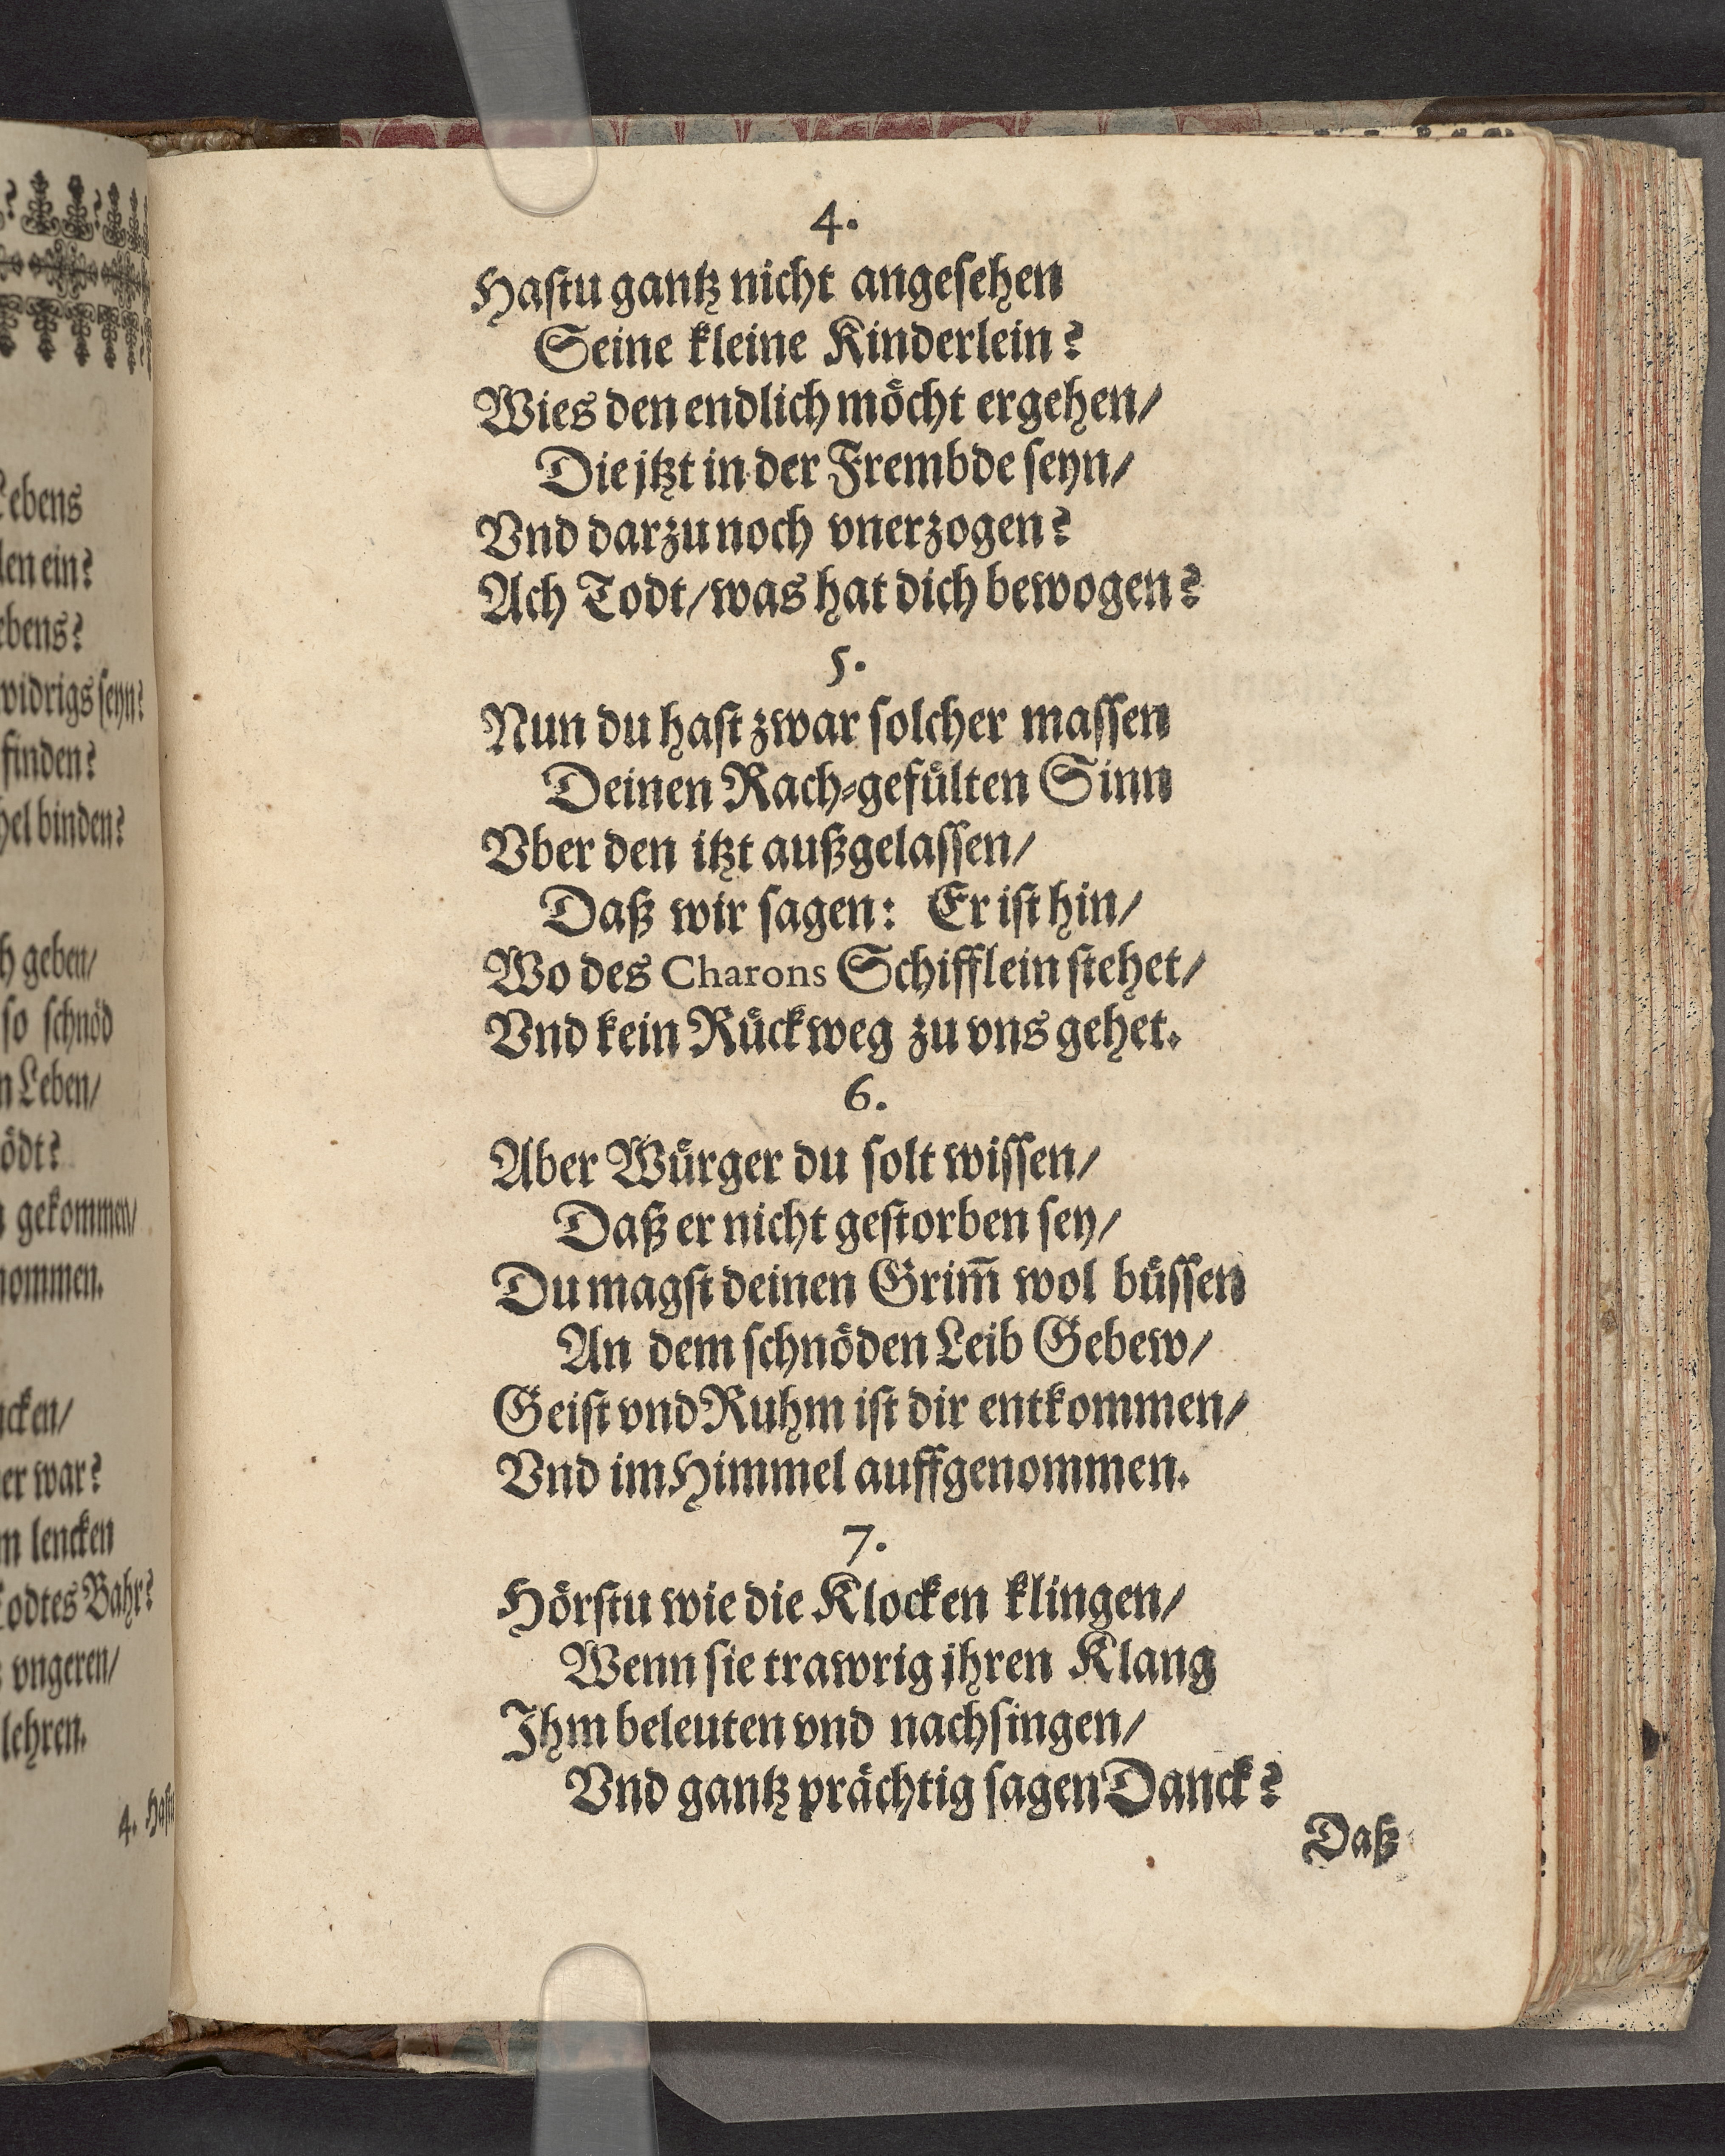 Lebens
len ein?
ebens?
widrigs seyn?
finden?
hel binden?
h geben/
so schnöd
n Leben/
ödt?
gekommen/
nommen.
cken/
er war?
m lencken
Todtes Bahr?
vngeren/
lehren.
4. Hastu
4.
Hastu gantz nicht angesehen
Seine kleine Kinderlein?
Wies den endlich möcht ergehen/
Die jtzt in der Frembde seyn/
Vnd darzu noch vnerzogen?
Ach Todt/ was hat dich bewogen?
5.
Nun du hast zwar solcher massen
Deinen Rach-gefülten Sinn
Vber den itzt außgelassen/
Daß wir sagen: Er ist hin/
Wo des Charons Schifflein stehet/
Vnd kein Rückweg zu vns gehet.
6.
Aber Würger du solt wissen/
Daß er nicht gestorben sey/
Du magst deinen Grim̃ wol büssen
An dem schnöden Leib Gebew/
Geist vnd Ruhm ist dir entkommen/
Vnd im Himmel auffgenommen.
7.
Hörstu wie die Klocken klingen/
Wenn sie trawrig ihren Klang
Ihm beleuten vnd nachsingen/
Vnd gantz prächtig sagen Danck?
Daß